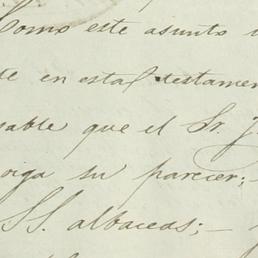 Como este asunto
te en esta testamen
sable que el Sr. J
oiga su parecer;
SS. albaceas; –